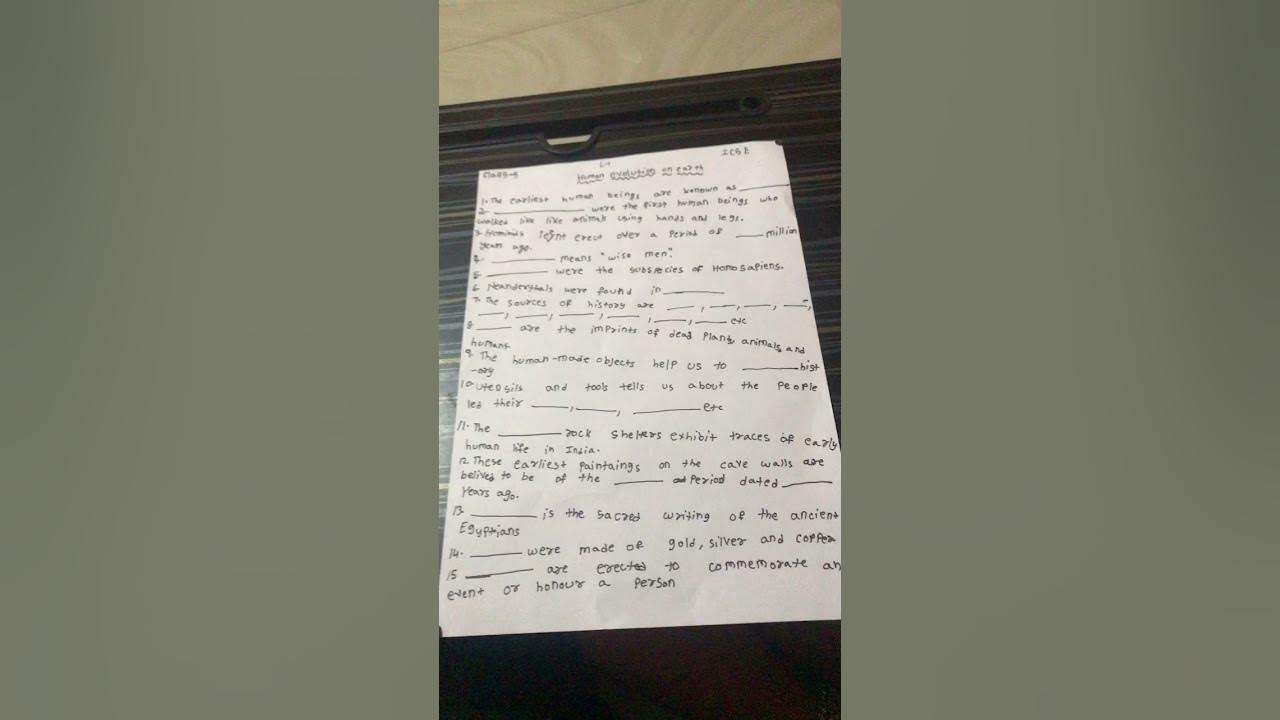 L-1 ICSE
Class-5 Human evolution on earth
1. The earliest human beings are konown as ______
2. ______ were the first human beings who
walked like like animals using hands and legs.
3. Hominids erect over a period of ____ million
years ago.
4. ______ means "wise men".
5. ______ were the subspecies of Homosapiens.
6. Neanderthals were found in ______
7. The sources of history are ___, ___, ___, ___,
___, ___, ___, ___, ___, ___ etc
8. ____ are the imprints of dead plants, animals, and
humans.
9. The human-made objects help us to ______ hist
-ory
10. utensils and tools tells us about the people
led their ____, ____, ______ etc
11. The ______ rock shelters exhibit traces of early
human life in India.
12. These earliest paintaings on the cave walls are
belived to be of the _____ period dated _____
years ago.
13. ______ is the sacred writing of the ancient
Egyptians
14. _____ were made of gold, silver and copper
15 ______ are erected to commemorate an
event or honour a person